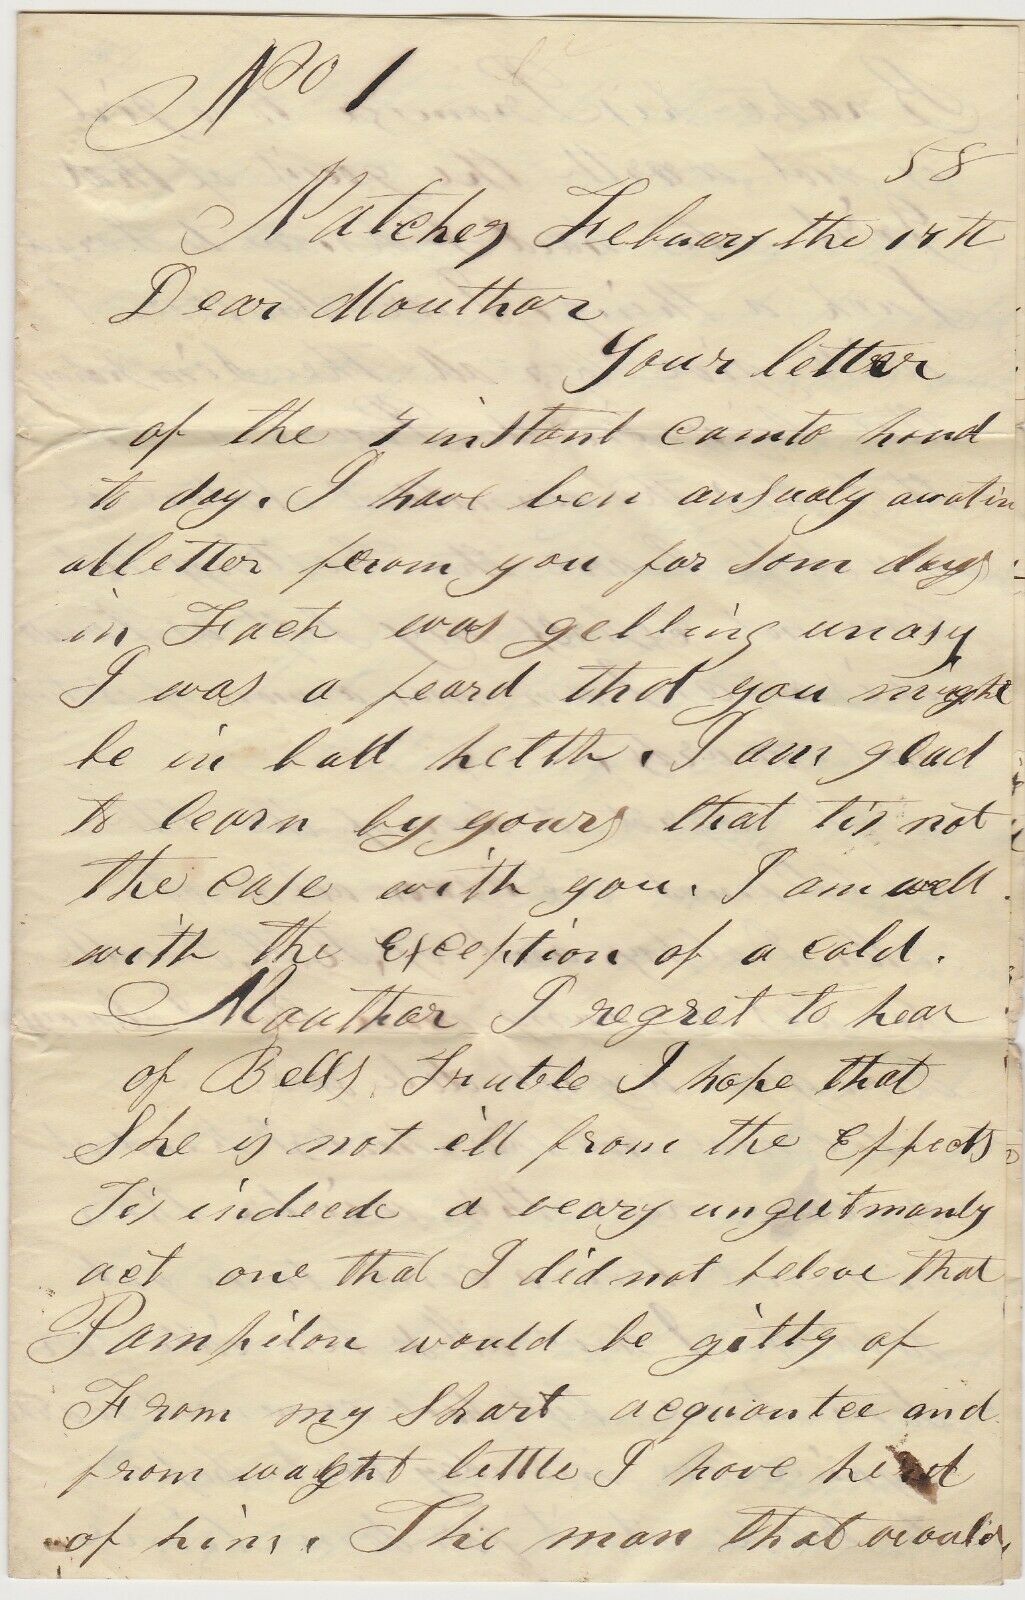 No 1
58
Natchez Febuary the 18th
Dear Mouthar
Your letter
of the instant camto hand
to day. I have ben ansualy awatin
abletter from you for som days
in Fact was getting unasy
I was a feard that you might
be in bad helth. I am glad
to learn by yours that tis not
the case with you. I am well
with the Exception of a cold.
Mouthar I regret to hear
of Bells Truble I hope that
She is not ill from the Effects
Tis indeede a veary ungeltmanly
act one that I did not beleve that
Pamphilon would be gilty of
From my Short acquantee and
from waght little I have herd
of him. The man that would